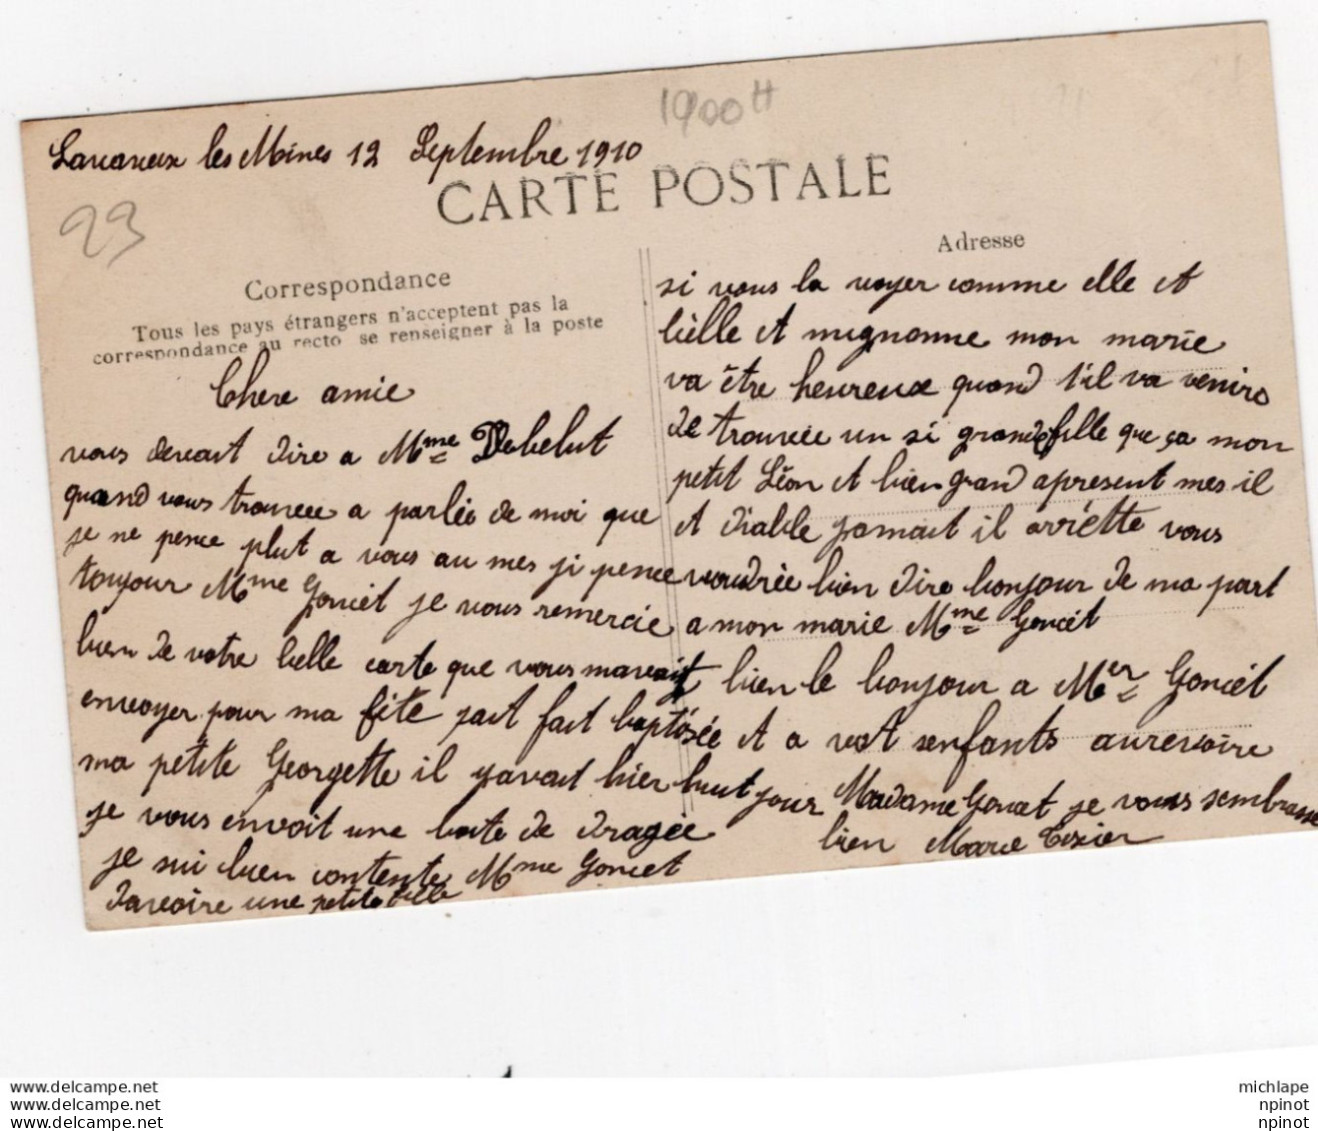 Lavaveix les Mines 12 Septembre 1910
1900 H
23
CARTE POSTALE
Correspondance
Tous les pays étrangers n'acceptent pas la
correspondance au recto se renseigner à la poste
Adresse
Chere amie
vous devait dire a Mme Debelut
quand vous trouvée a parlée de moi que
je ne pence plut a vous au mes ji pence
toujour Mme Goncet je vous remercie
bien de votre belle carte que vous mavait
envoyer pour ma fête jait fait baptisée
ma petite Georgette il yavait hier huit jour
je vous envoit une boite de dragée
je sui bien contente Mme Goncet
davoire une petite bille
si vous la voyer comme elle et
bielle et mignonne mon marie
va être heureux quand s'il va venire
de trouvée un si grande fille que ça mon
petit Léon et bien grand apresent mes il
et diable jamait il arrétte vous
voudrée bien dire bonjour de ma part
a mon marie Mme Goncet
bien le bonjour a Mer Goncet
et a vot senfants aurevoire
Madame Goncet je vous sembrasse
bien Marie Tixier
www.delcampe.net
www.delcampe.net
www.delcampe.net
michlape
npinot
npinot